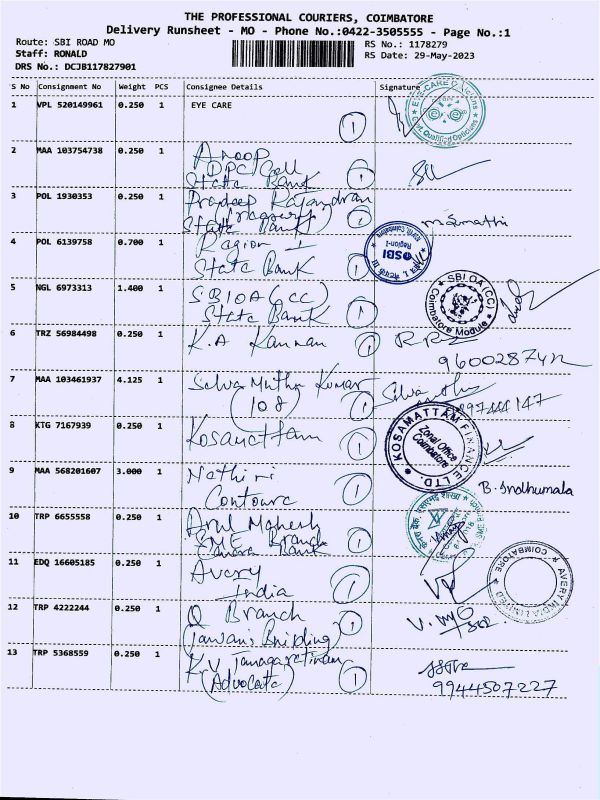 THE PROFESSIONAL COURIERS, COIMBATORE
Delivery Runsheet - MO - Phone No.:0422-3505555 - Page No.:1
Route: SBI ROAD MO
RS No.: 1178279
Staff: RONALD
RS Date: 29-May-2023
DRS No.: DCJB117827901
S No Consignment No Weight PCS Consignee Details Signature
1 VPL 520149961 0.250 1 EYE CARE
1
EYE-CARE Opticians
Govt. Qualified Opticians
2 MAA 103754738 0.250 1 Anoop
DPC Cell
State Bank 1
3 POL 1930353 0.250 1 Pradeep Rajandran
State Bank 1
m. Sumathi
4 POL 6139758 0.700 1 Region I
State Bank 1
SBI
Region-I
5 NGL 6973313 1.400 1 SBIOA (CC)
State Bank 1
SBI OA (CC)
Coimbatore Module
6 TRZ 56984498 0.250 1 K.A Kannan 1
7 MAA 103461937 4.125 1 Selva Muthu Kumar
(108) 1
8 KTG 7167939 0.250 1 Kosamattam 1
KOSAMATTAM FINANCE LTD.
Zonal Office
Coimbatore
9 MAA 568201607 3.000 1
Contoure 1
B. Indhumala
10 TRP 6655558 0.250 1 Arul Mahesh
Branch
Canara Bank 1
11 EDQ 16605185 0.250 1 Avery
India 1
AVERY INDIA LIMITED
COIMBATORE
12 TRP 4222244 0.250 1 Q Branch 1
13 TRP 5368559 0.250 1 K.V
(Advocate) 1
9944507227